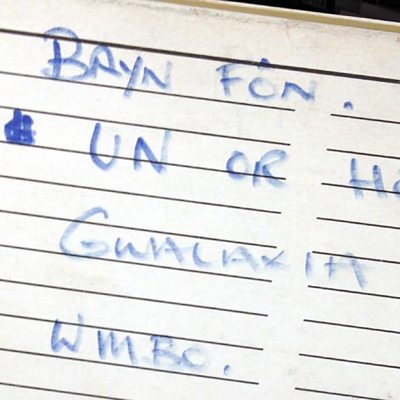 BRYN FÔN.
UN OR HO
GWALAXIA
WMBO.